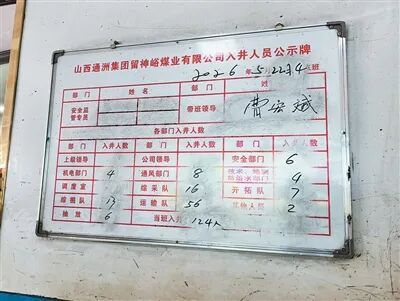 山西通洲集团留神峪煤业有限公司入井人员公示牌
2026年5月22日4班
部门 姓名 部门 姓名
安全监管专员 带班领导 曹
各部门入井人数
部门 入井人数 部门 入井人数 部门 入井人数
上级领导 公司领导 安全部门 6
机电部门 4 通风部门 8 技术、地测防治水部门 9
调度室 综采队 16 开拓队 7
综掘队 13 运输队 56 其他人员 2
抽放 6 当班入井 124人